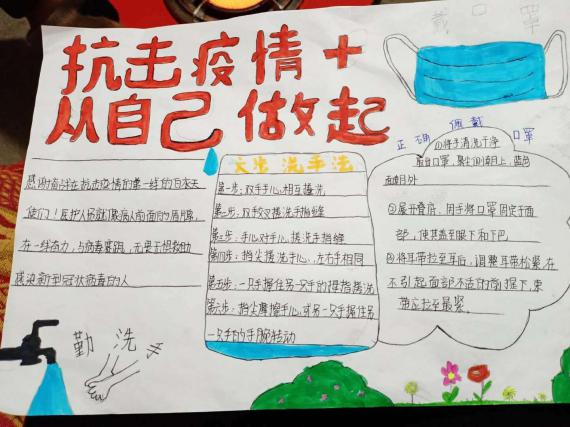 戴口罩
抗击疫情+
从自己做起
感谢奋战在抗击疫情的第一线的白衣天
使们！医护人员就
在一线奋力，与病毒赛跑，无畏无惧救助
感染新型冠状病毒的人
六步洗手法
第一步：双手手心相互搓洗
第二步：双手交叉搓洗手指缝
第三步：手心对手心，搓洗手指缝
第四步：指尖搓洗手心，左右手相同
第五步：一只手握住另一只手的拇指搓洗
第六步：指尖摩擦手心，或另一只手握住另
一只手的手腕转动
正确佩戴口罩
①将手清洗干净
取出口罩，鼻尖间向上，蓝色
面朝外
②展开叠层，用手将口罩固定于面
部，使其盖到眼下和下巴
③将耳带拉至耳后，调整耳带松紧，在
不引起面部不适的前提下，束
带应拉至最紧.
勤洗手